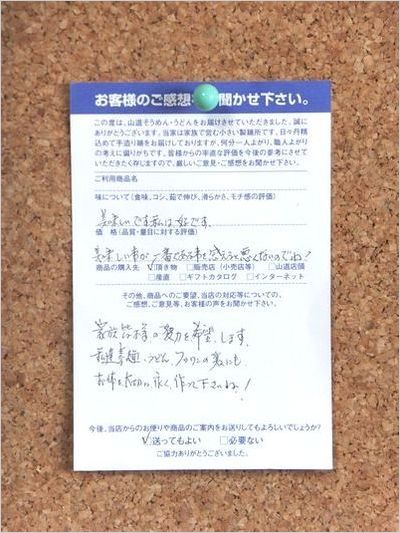 お客様のご感想をお聞かせ下さい。
この度は、山道そうめん・うどんをお届けさせていただきました。誠に
ありがとうございます。当家は家族で営む小さい製麺所です。日々丹精
込めて手造り麺をお届けしておりますが、何分一人よがり、職人よがり
の考えに偏りがちです。皆様からの率直な評価を今後の参考にさせて
いただきたく存じますので、厳しいご意見・ご感想をお聞かせ下さい。
ご利用商品名
味について(食味、コシ、茹で伸び、滑らかさ、モチ感の評価)
美味しいです私は好です
価 格(品質・量目に対する評価)
美味しい事が一番である事を思うと悪くないのでは!
商品の購入先 ☑頂き物 □販売店(小売店等) □山道店頭
□産直 □ギフトカタログ □インターネット
その他、商品へのご要望、当店の対応等についての、
ご感想、ご意見等、お客様の声をお聞かせ下さい。
家族皆様の努力を希望します
うどん
お体を大切に永く作って下さいね!
今後、当店からのお便りや商品のご案内をお送りしてもよろしいでしょうか?
☑送ってもよい □必要ない
ご協力ありがとうございました。